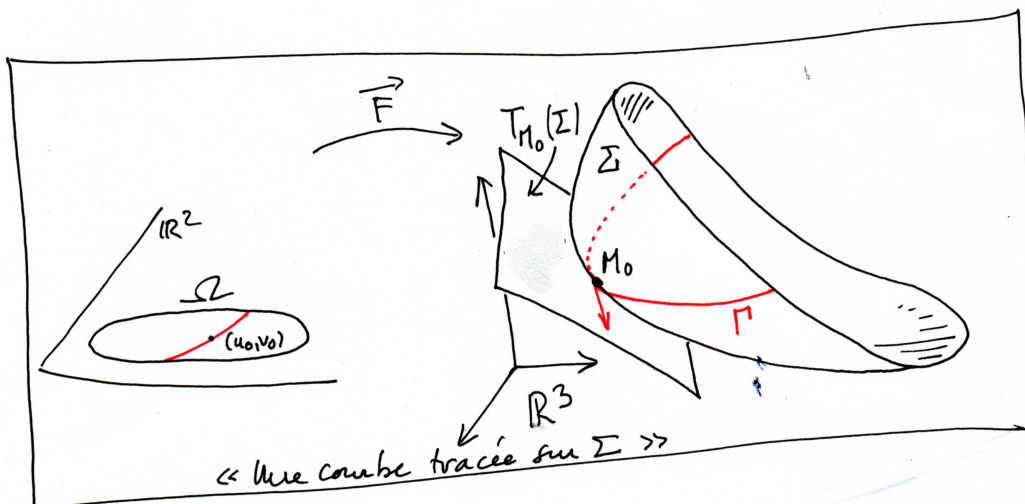 F
T_{M_0}(Σ)
Σ
ℝ²
Ω
(u₀,v₀)
M₀
Γ
ℝ³
« Une courbe tracée sur Σ »